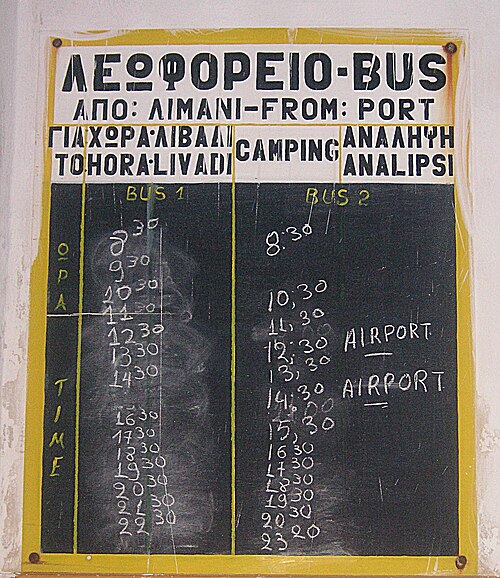 ΛΕΩΦΟΡΕΙΟ·BUS
ΑΠΟ: ΛΙΜΑΝΙ-FROM: PORT
ΓΙΑ ΧΩΡΑ·ΛΙΒΑΔΙ
TO HORA·LIVADI
CAMPING
ΑΝΑΛΗΨΗ
ANALIPSI
BUS 1
BUS 2
ΩΡΑ
TIME
8 30
9 30
10 30
11 30
12 30
13 30
14 30
16 30
17 30
18 30
19 30
20 30
22 30
8:30
10,30
11,30
12,30
13,30
14,30
15,30
16 30
17 30
18 30
19 30
20 30
23 20
AIRPORT
AIRPORT